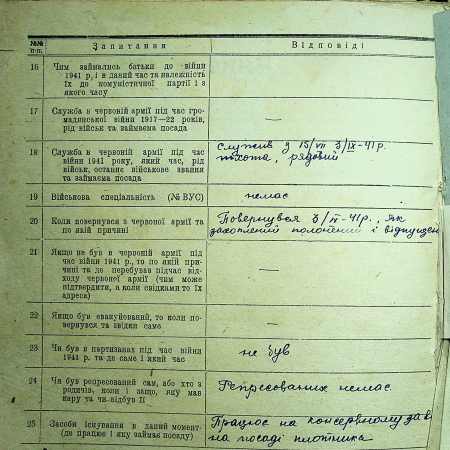 №№ п-п.
Запитання
Відповіді
16 Чим займались батьки до війни
1941 р., і в даний час та належність
їх до комуністичної партії і з
якого часу
17 Служба в червоній армії під час гро-
мадянської війни 1917—22 років,
рід військ та займаєма посада
—
18 Служба в червоній армії під час
війни 1941 року, який час, рід
військ, останнє військове звання
та займаєма посада
Служив з 15/VII 3/IX-41р.
піхота, рядовий
19 Військова спеціяльність (№ ВУС)
немає
20 Коли повернувся з червоної армії та
по якій причині
Повернувся 3/IX-41р., як
захоплений полонений і відпущен
21 Якщо не був в червоній армії під
час війни 1941 р., то по якій при-
чині та де перебував підчас від-
ходу червоної армії (чим може
підтвердити, а коли свідками то їх
адреса)
—
22 Якщо був евакуйований, то коли по-
вернувся та звідки саме
—
23 Чи був в партизанах під час війни
1941 р. та де саме і який час
не був
24 Чи був репресований сам, або хто з
родичів, коли і защо, яку мав
кару та чи відбув її
Репресованих немає
25 Засоби існування в даний момент
(де працює і яку займає посаду)
Працює на консервному зав
на посаді плотника